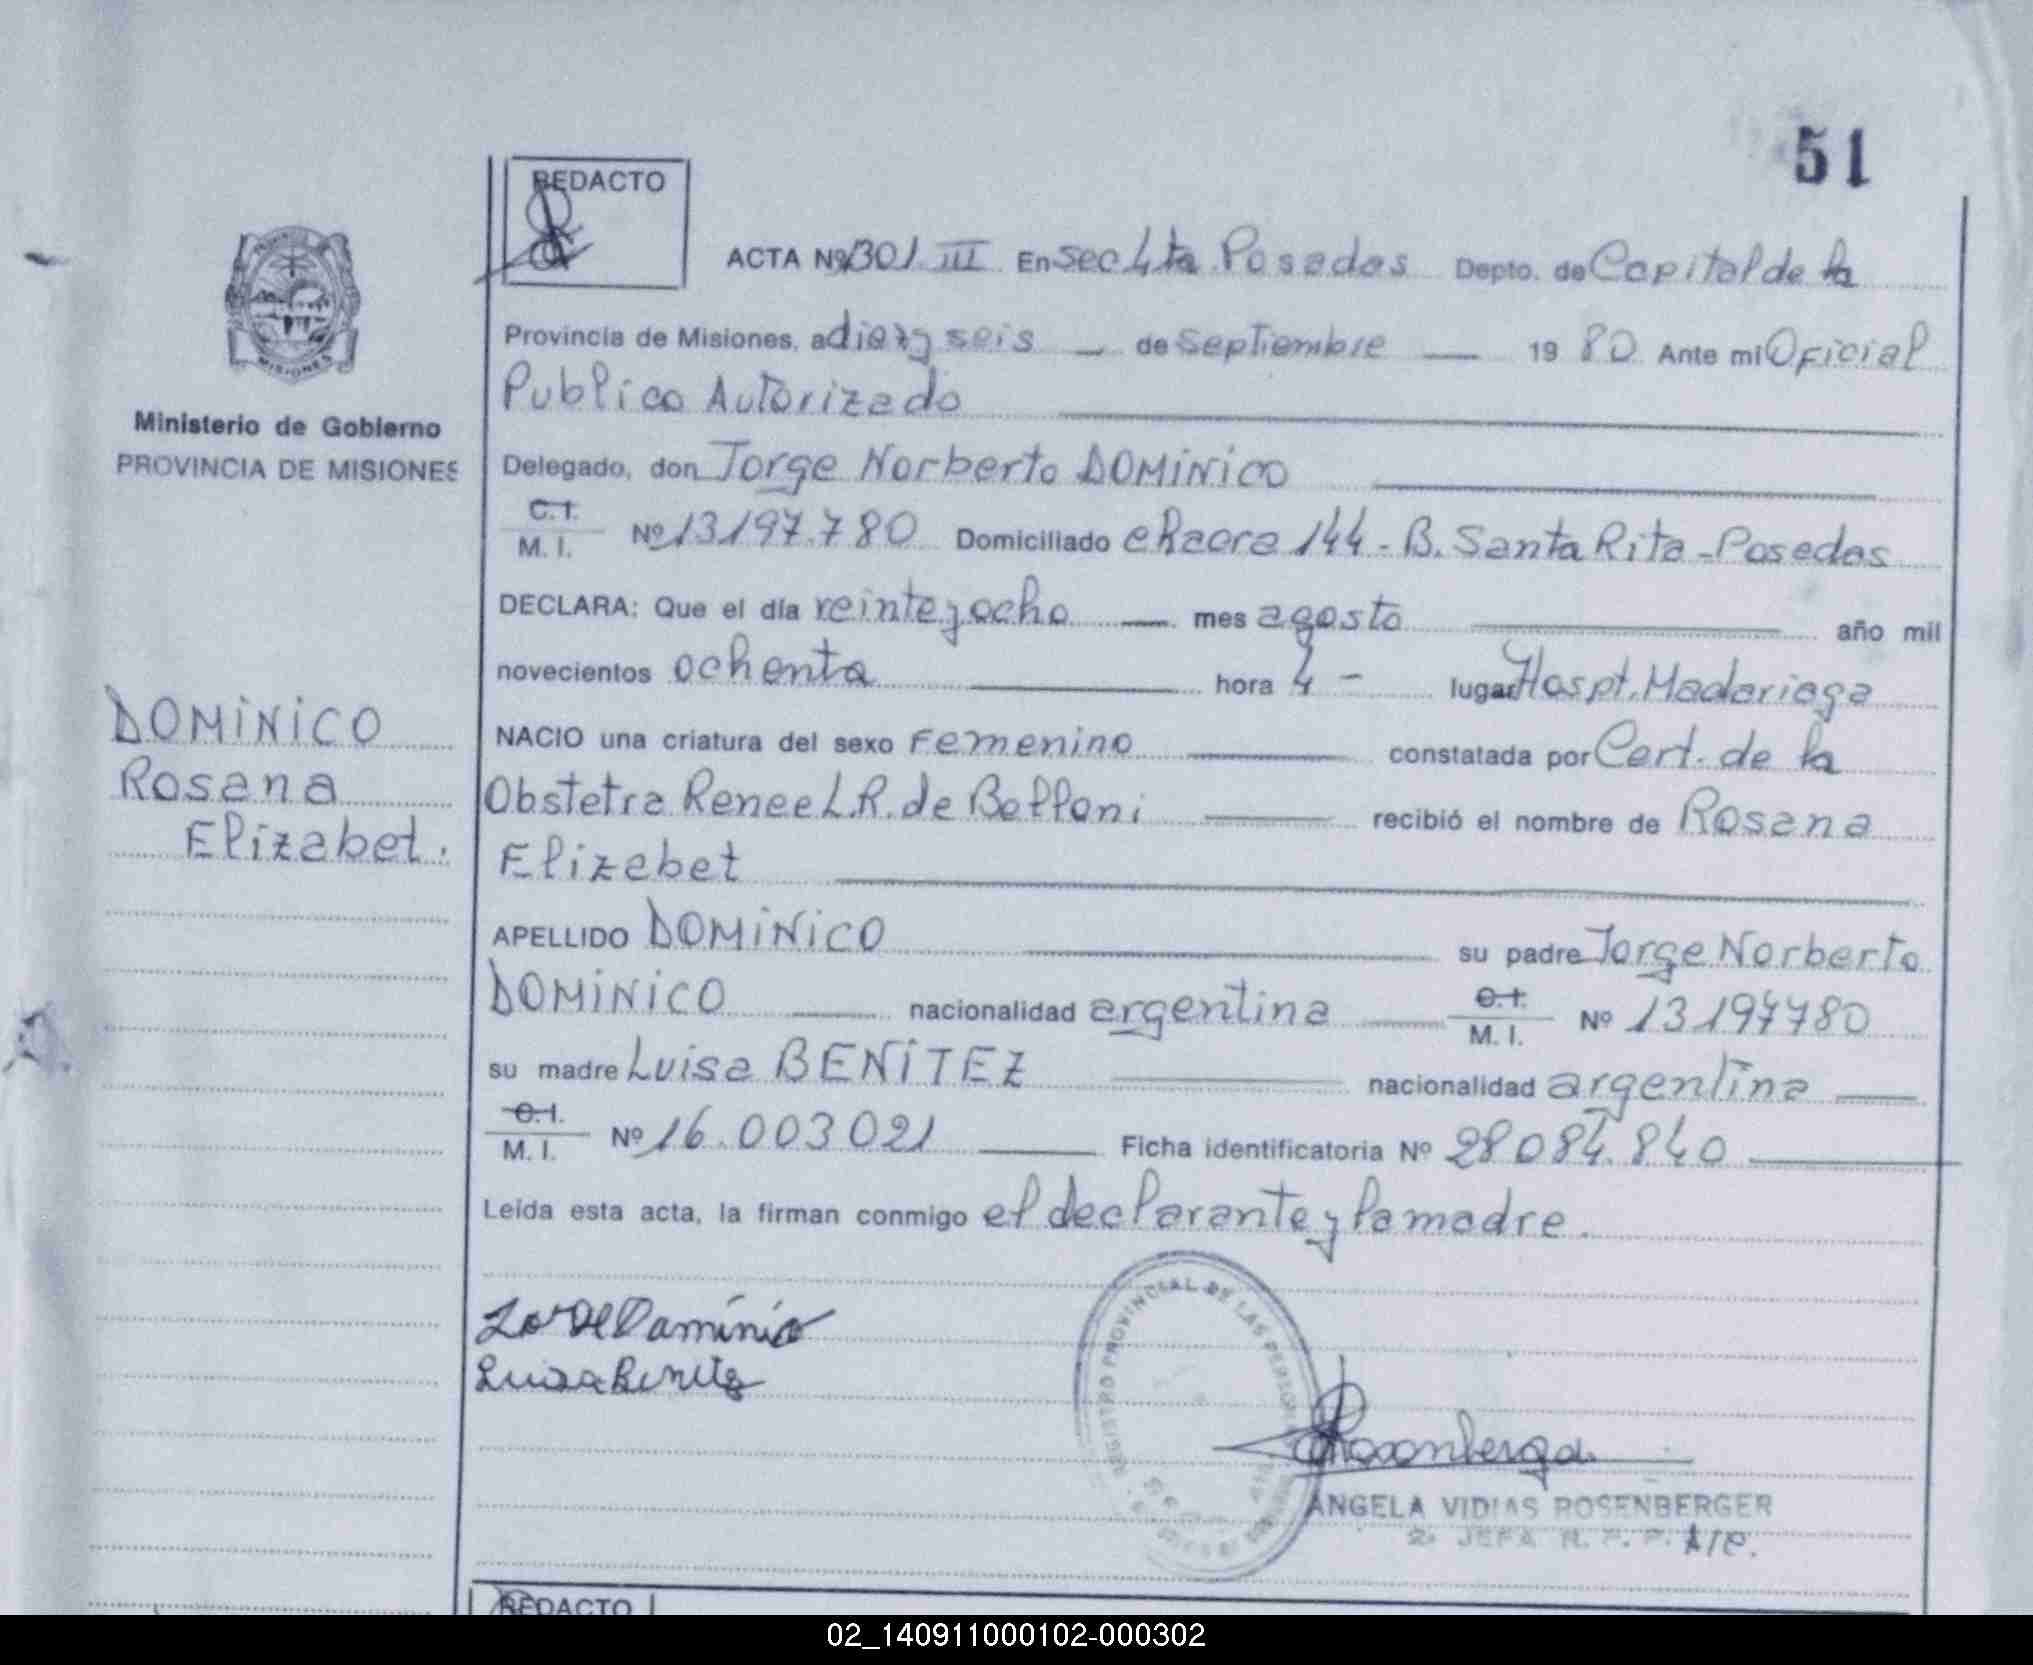 51
REDACTO
ACTA Nº 1301 III En Sec 4ta Posadas Depto. de Capital de la
Provincia de Misiones, a diez y seis — de Septiembre — 19 80 Ante mi Oficial
Publico Autorizado
Delegado, don Jorge Norberto DOMINICO
C.I. M. I. Nº 13197.780 Domiciliado chacra 144 - B. Santa Rita - Posadas
DECLARA: Que el día veinte y ocho — mes agosto año mil
novecientos ochenta hora 4 - lugar Hospt. Madariaga
NACIO una criatura del sexo Femenino constatada por Cert. de la
Obstetra Renee L.R. de Belloni recibió el nombre de Rosana
Elizabet
APELLIDO DOMINICO su padre Jorge Norberto
DOMINICO nacionalidad argentina C.I. M. I. Nº 13197780
su madre Luisa BENITEZ nacionalidad argentina
C.I. M. I. Nº 16.003021 Ficha identificatoria Nº 28084.840
Leída esta acta, la firman conmigo el declarante y la madre.
Luisa Benitez
REGISTRO PROVINCIAL DE LAS PERSONAS
ANGELA VIDIAS ROSENBERGER
2ª JEFA R. P. P.
REDACTO
MISIONES
Ministerio de Gobierno
PROVINCIA DE MISIONES
DOMINICO
Rosana
Elizabet.
02_140911000102-000302